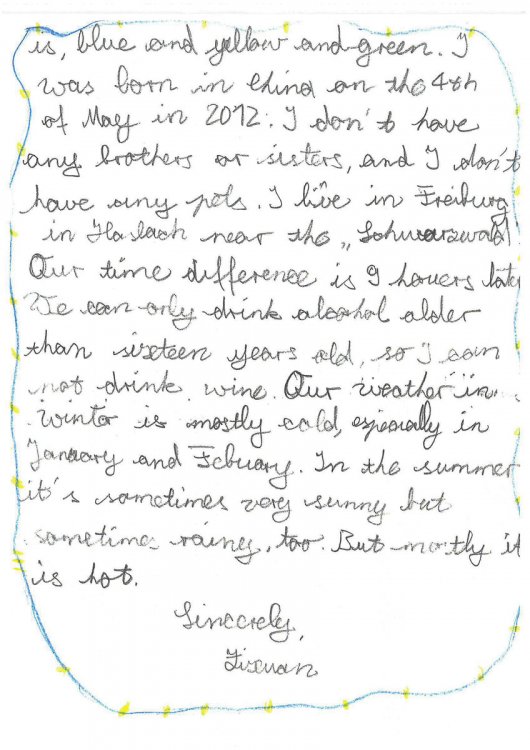 is, blue and yellow and green. I
was born in China on the 4th
of May in 2012. I don't have
any brothers or sisters, and I don't
have any pets. I live in Freiburg
in Haslach near the „Schwarzwald"
Our time difference is 9 houers late
We can only drink alcohol alder
than sixteen years old, so I can
not drink wine. Our weather in
winter is mostly cold, especially in
January and Febuary. In the summer
it's sometimes very sunny but
sometimes rainey, too. But mostly it
is hot.
Sincerely,